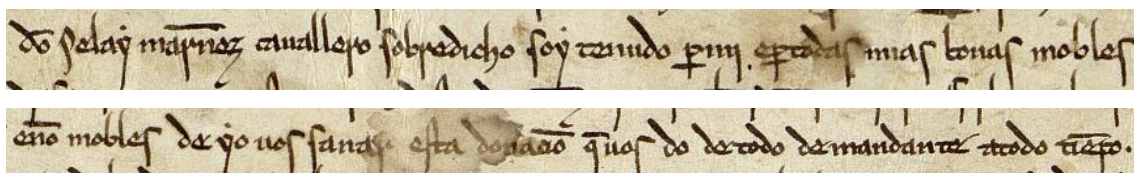 dõ Pelay marñez cauallero sobredicho soy tenudo ꝑ mi . e ꝑ todas mias bonas mobles
enõ mobles de yo uos sanar esta donaciõ q̃ uos do de todo demandante atodo tiẽpo.